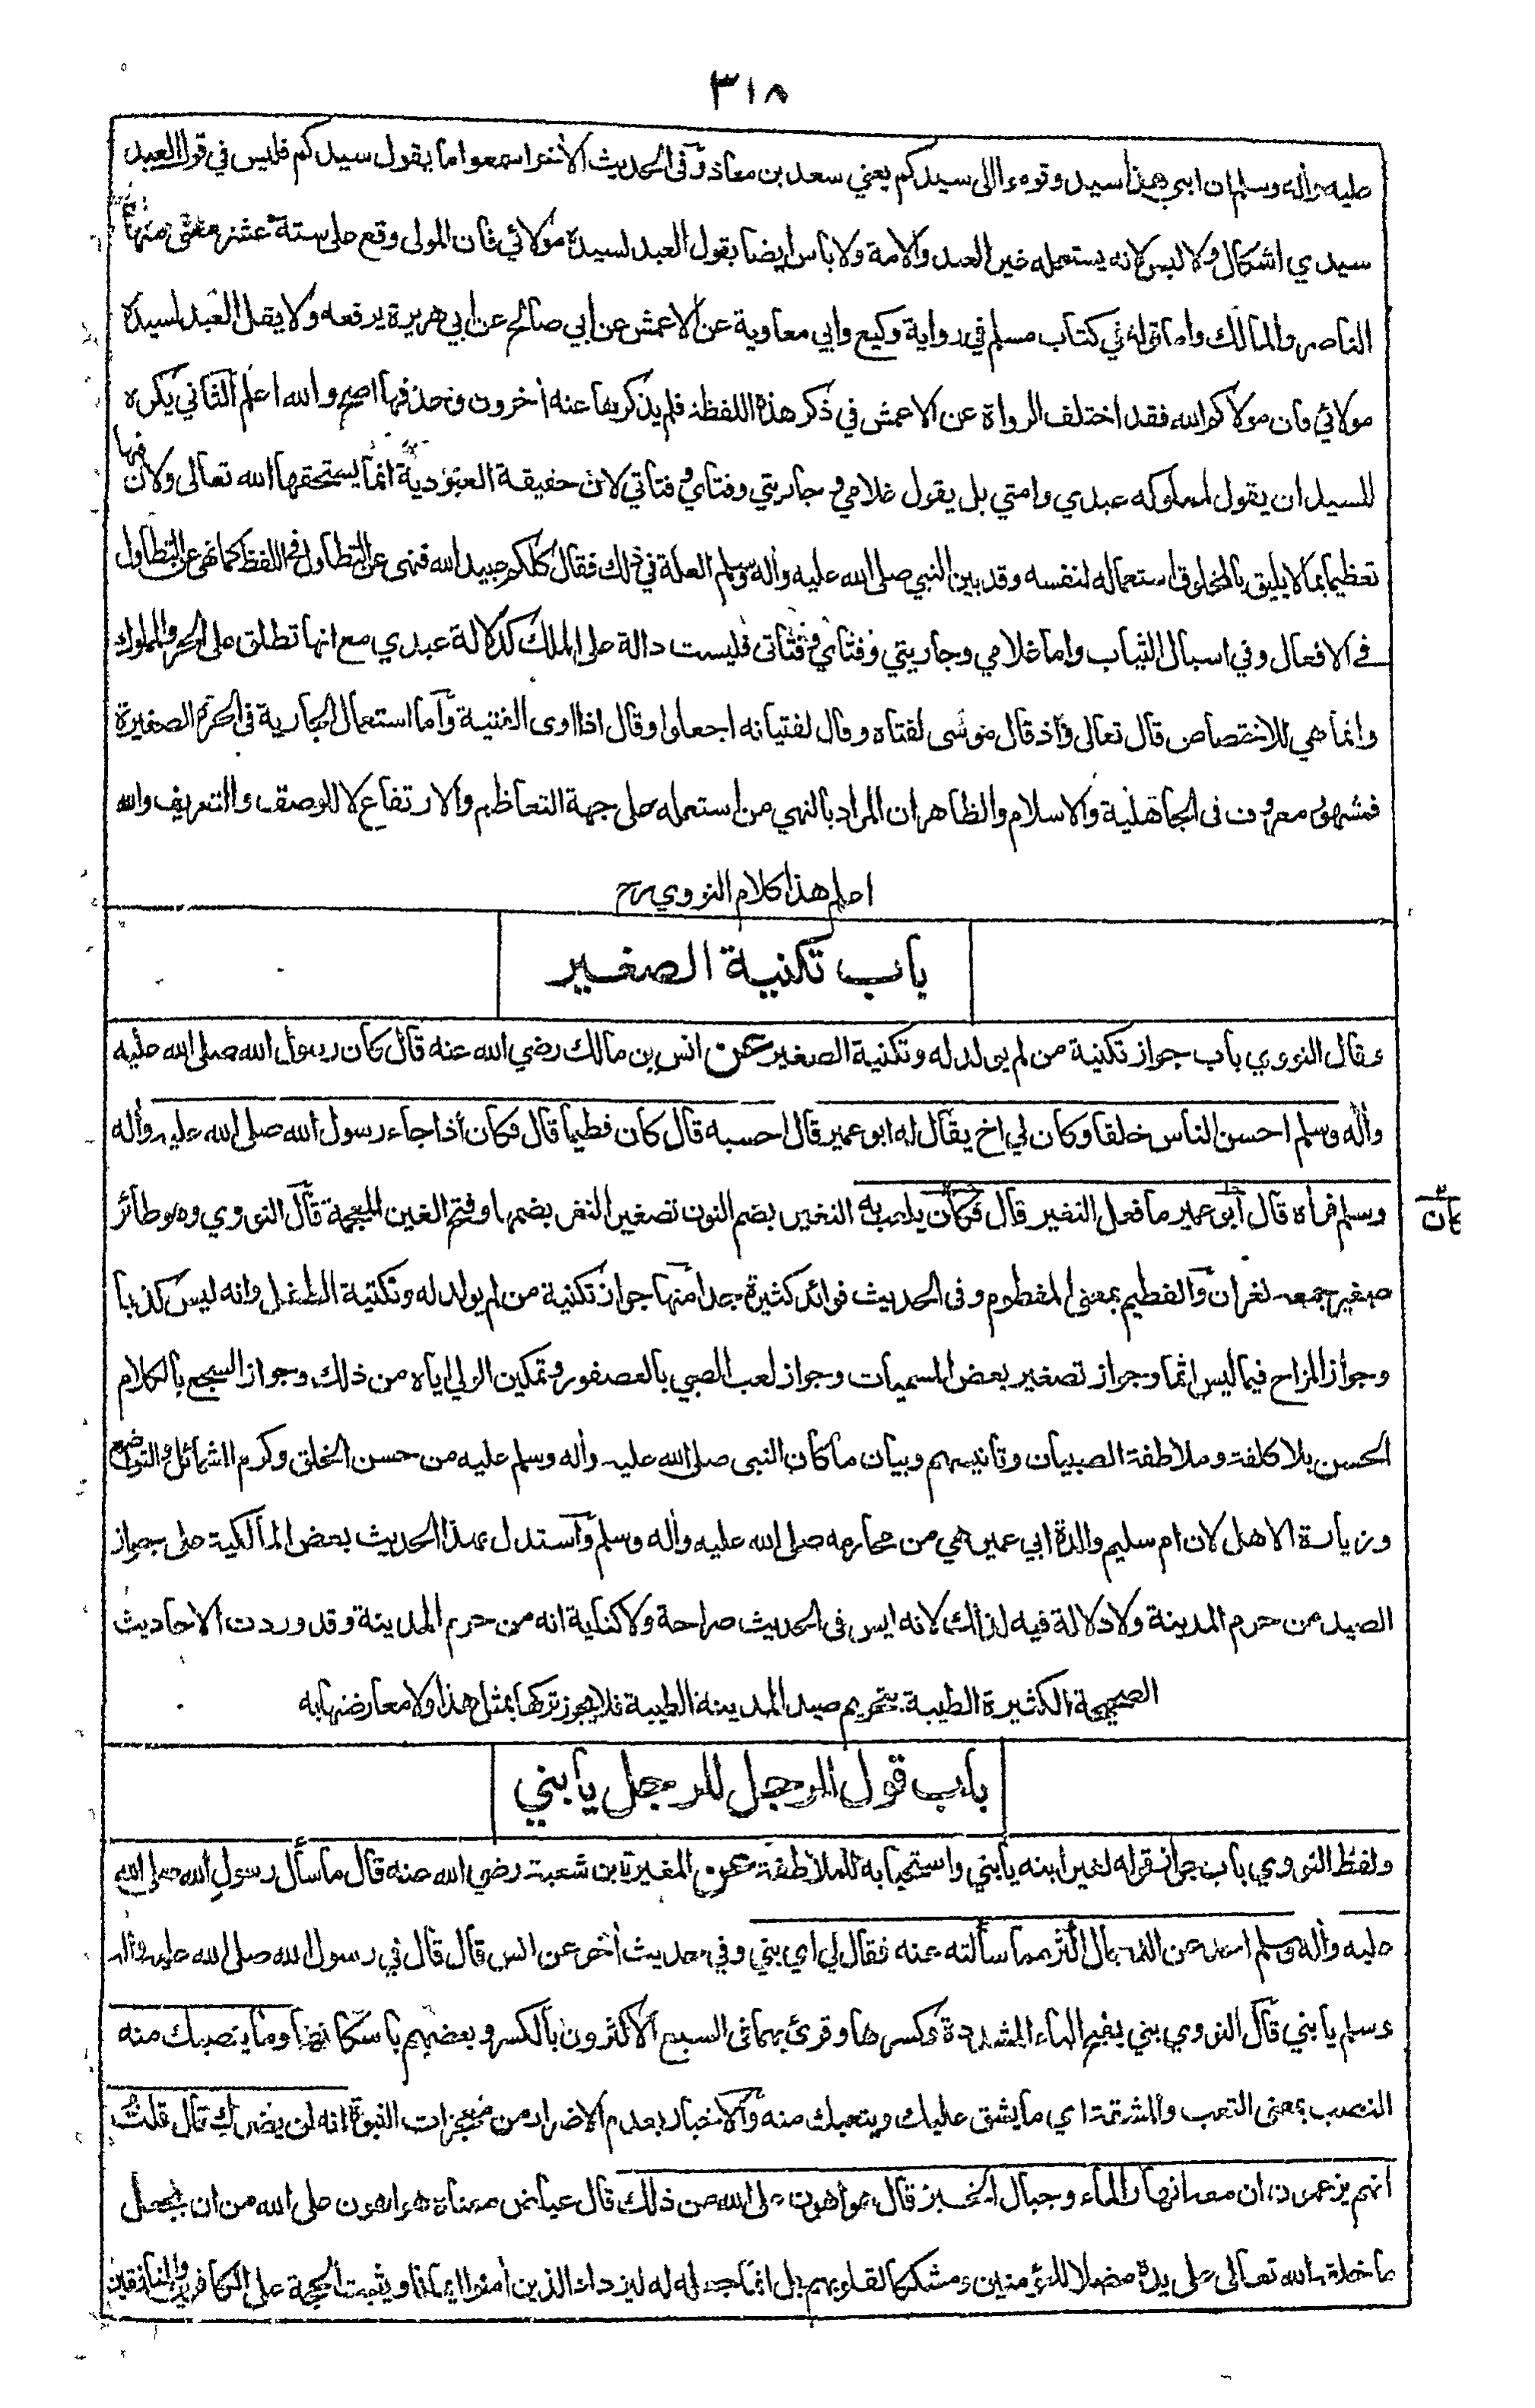 ٣١٨
عليه وأله وسلم ان ابني هذا سيد وقوموا الى سيدكم يعني سعد بن معاذ وفى الحديث الأخر اسمعوا ما يقول سيدكم فليس في قول العبد
سيدي اشكال ولا لبس لانه يستعمله غير العبد والامة ولا باس ايضا بقول العبد لسيده مولائي فان المولى وقع على ستة عشر معنى منها
الناصر والمالك واما قوله في كتاب مسلم في رواية وكيع وابي معاوية عن الاعمش عن ابي صالح عن ابي هريرة يرفعه ولا يقل العبد لسيده
مولائي فان مولاكم الله فقد اختلف الرواة عن الاعمش في ذكر هذه اللفظة فلم يذكرها عنه أخرون وحذفها اصح والله اعلم الثاني يكره
للسيد ان يقول لمملوكه عبدي وامتي بل يقول غلامي وجاريتي وفتاي وفتاتي لان حقيقة العبودية انما يستحقها الله تعالى ولان فيها
تعظيما بما لا يليق بالمخلوق استعماله لنفسه وقد بين النبي صلى الله عليه وأله وسلم العلة في ذلك فقال كلكم عبيد الله فنهى عن التطاول فى اللفظ كما نهى عن التطاول
في الافعال وفي اسبال الثياب واما غلامي وجاريتي وفتاي وفتاتى فليست دالة على الملك كدلالة عبدي مع انها تطلق على الحر والمملوك
وانما هي للاختصاص قال تعالى واذ قال موسى لفتاه وقال لفتيانه اجعلوا وقال اذ اوى الفتية واما استعمال الجارية فى الحرة الصغيرة
فمشهور معروف فى الجاهلية والاسلام والظاهر ان المراد بالنهي من استعمله على جهة التعاظم والارتفاع لا للوصف والتعريف والله
اعلم هذا كلام النووي رح
باب تكنية الصغير
وقال النووي باب جواز تكنية من لم يولد له وتكنية الصغير عن انس بن مالك رضي الله عنه قال كان رسول الله صلى الله عليه
وأله وسلم احسن الناس خلقا وكان لي اخ يقال له ابو عمير قال احسبه قال كان فطيما قال فكان أذا جاء رسول الله صلى الله عليه وأله
وسلم فرأه قال ابا عمير ما فعل النغير قال فكان يلعب به النغير بضم النون تصغير النغر بضمها وفتح الغين المعجمة قال النووي وهو طائر
كان
صغير جمعه نغران والفطيم بمعنى المفطوم وفى الحديث فوائد كثيرة جدا منها جواز تكنية من لم يولد له وتكنية الطفل وانه ليس كذبا
وجواز المزاح فيما ليس اثما وجواز تصغير بعض المسميات وجواز لعب الصبي بالعصفور وتمكين الولي اياه من ذلك وجواز السجع بالكلام
الحسن بلا كلفة وملاطفة الصبيان وتانيسهم وبيان ما كان النبى صلى الله عليه وأله وسلم عليه من حسن الخلق وكرم الشمائل والتواضع
وزيارة الاهل لان ام سليم والدة ابي عمير هي من محارمه صلى الله عليه وأله وسلم واستدل بهذا الحديث بعض المالكية على جواز
الصيد من حرم المدينة ولا دلالة فيه لذلك لانه ليس فى الحديث صراحة ولا كناية انه من حرم المدينة وقد وردت الاحاديث
الصحيحة الكثيرة الطيبة بتحريم صيد المدينة الطيبة فلا يجوز تركها بمثل هذا ولا معارضتها به
باب قول الرجل للرجل يا بني
ولفظ النووي باب جواز قوله لغير ابنه يا بني واستحبابه للملاطفة عن المغيرة بن شعبة رضي الله عنه قال ما سأل رسول الله صلى الله
عليه وأله وسلم احد عن الدجال اكثر مما سألته عنه فقال لي اي بني وفي حديث أخر عن انس قال قال لي رسول الله صلى الله عليه وأله
وسلم يا بني قال النووي بني بفتح الياء المشددة وكسرها وقرئ بهما فى السبع الاكثرون بالكسر وبعضهم باسكانها وما ينصبك منه
النصب بمعنى التعب والمشقة اي ما يشق عليك ويتعبك منه والاخبار بعدم الاضرار من معجزات النبوة انه لن يضرك قال قلت
انهم يزعمون ان معه انهار الماء وجبال الخبز قال هو اهون على الله من ذلك قال عياض معناه هو اهون على الله من ان يجعل
ما خلقه الله تعالى على يده مضلا للمؤمنين ومشككا لقلوبهم بل انما جعله له ليزداد الذين أمنوا ايمانا ويثبت الحجة على الكافرين والمنافقين